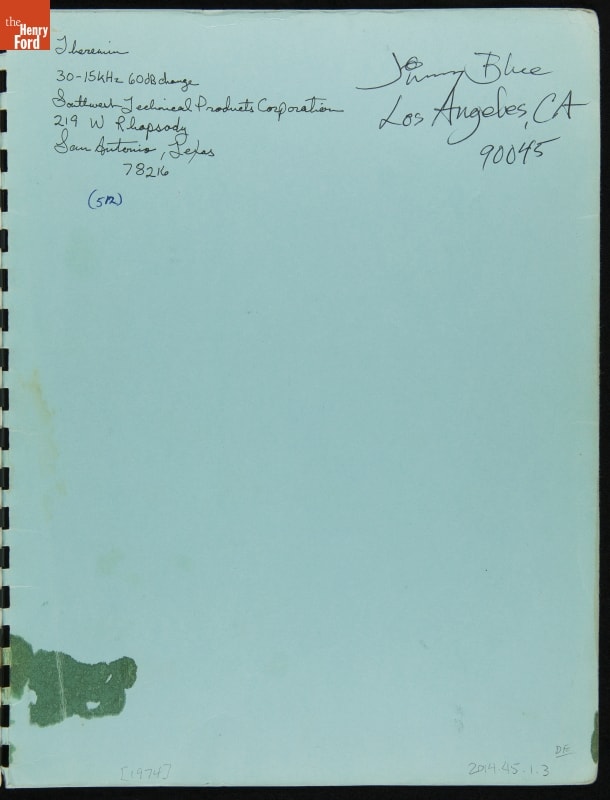 the
Henry
Ford
Theremin
30-15kHz 60dB change
Southwest Technical Products Corporation
219 W Rhapsody
San Antonio, Texas
78216
(512)
Jimmy Blue
Los Angeles, CA
90045
DE
[1974]
2014.45.1.3